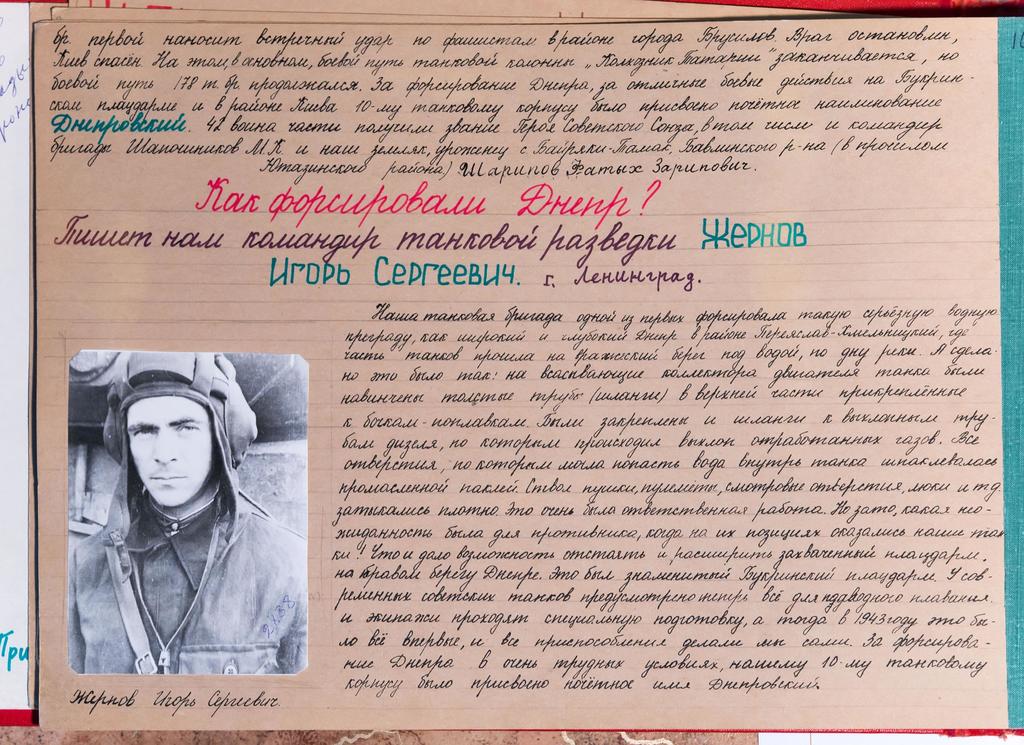 бр. первой наносит встречный удар по фашистам в районе города Брусилов. Враг остановлен,
Киев спасён. На этом, в основном, боевой путь танковой колонны „Колхозник Татарии" заканчивается, но
боевой путь 178 т. бр. продолжался. За форсирование Днепра, за отличные боевые действия на Букрин-
ском плацдарме и в районе Киева 10-му танковому корпусу было присвоено почётное наименование
Днепровский. 42 воина части получили звание Героя Советского Союза, в том числе и командир
бригады Шапошников М.К. и наш земляк, уроженец с. Байряки-Тамак, Бавлинского р-на (в прошлом
Ютазинского района) Шарипов Фатых Зарипович.
Как форсировали Днепр?
Пишет нам командир танковой разведки Жернов
Игорь Сергеевич. г. Ленинград.
Наша танковая бригада одной из первых форсировала такую серьёзную водную
преграду, как широкий и глубокий Днепр в районе Переяслав-Хмельницкий, где
часть танков прошла на вражеский берег под водой, по дну реки. А сдела-
но это было так: на всасывающие коллектора двигателя танка были
навинчены толстые трубы (шланги) в верхней части прикреплённые
к бочкам-поплавкам. Были закреплены и шланги к выхлопным тру-
бам дизеля, по которым происходил выхлоп отработанных газов. Все
отверстия, по которым могла попасть вода внутрь танка шпаклевалась
промасленной паклей. Ствол пушки, пулемёты, смотровые отверстия, люки и т.д.
затыкались плотно. Это очень была ответственная работа. Но зато, какая нео-
жиданность была для противника, когда на их позициях оказались наши тан
ки! Что и дало возможность отстоять и расширить захваченный плацдарм.
на правом берегу Днепре. Это был знаменитый Букринский плацдарм. У сов-
ременных советских танков предусмотрено теперь всё для подводного плавания
и экипажи проходят специальную подготовку, а тогда в 1943 году это бы-
ло всё впервые, и все приспособления делали мы сами. За форсирова-
ние Днепра в очень трудных условиях, нашему 10-му танковому
корпусу было присвоено почётное имя Днепровский.
Жернов Игорь Сергеевич.
При